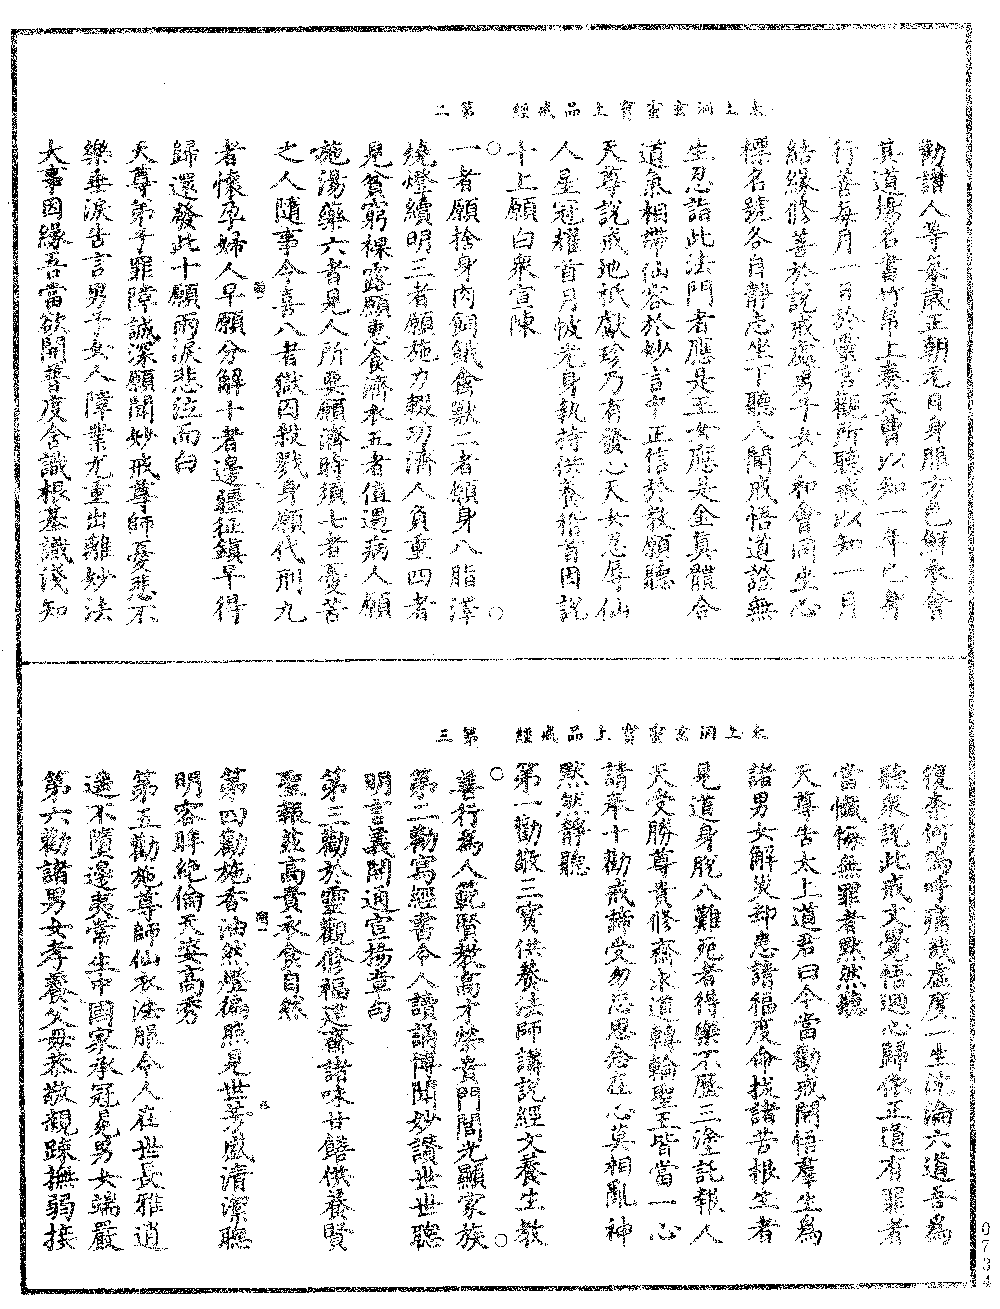 太上洞玄靈寶上品戒經　第二
勸讚人等每歲正朝元日身服方色鮮衣會
其道場名書竹帛上奏天曹以知一年已身
行善每月一日於靈宮觀所聽戒以知一月
結緣修善於說戒處男子女人和會同坐心
標名號各自靜志坐下聽入聞戒悟道證無
生忍詣此法門者應是玉女應是金真體合
道氣相帶仙容於妙言中正信於教願聽
天尊說戒地祇獻珍乃有發心天女忍辱仙
人星冠耀首月帔光身執持供養稽首因說
十上願白衆宣陳
一者願捨身肉飼餓禽獸二者願身八脂澤
繞燈續明三者願施力輟功濟人負重四者
見貧窮裸露願惠食濟衣五者值遇病人願
施湯藥六者見人所要願濟時須七者憂苦
之人隨事令喜八者獄囚殺戮身願代刑九
者懷孕婦人早願分解十者邊疆征鎮早得
歸還發此十願雨淚悲泣而白
天尊弟子罪障誠深願聞妙戒尊師憂悲不
樂垂淚告言男子女人障業尤重出離妙法
大事因緣吾當欲開普度含識根基識淺知
太上洞玄靈寶上品戒經　第三
復奈何嗚呼痛哉虛度一生沈淪六道吾為
聽衆說此戒文覺悟迴心歸依正道有罪者
當懺悔無罪者默然聽
天尊告太上道君曰今當勸戒開悟羣生為
諸男女解災却患請福度命拔諸苦根生者
見道身脫八難死者得樂不歷三塗託報人
天受勝尊貴修齋求道轉輪聖王皆當一心
請奉十勸戒諦受勿忘思念在心莫相亂神
默然靜聽
第一勸敬三寶供養法師講說經文養生教
善行為人範賢教高才榮貴門閭光顯家族
第二勸寫經書令人讀誦傳聞妙讚世世聰
明言義開通宣揚章句
第三勸於靈觀修福建齋諸味甘饍供養賢
聖報茲高貴衣食自然
第四勸施香油然燈徧照見世芳盛清潔聰
明容眸絶倫天姿高秀
第五勸施尊師仙衣法服令人在世長雅逍
遙不墮邊夷常生中國家承冠冕男女端嚴
第六勸諸男女孝養父母恭敬親疎撫弱接
0734